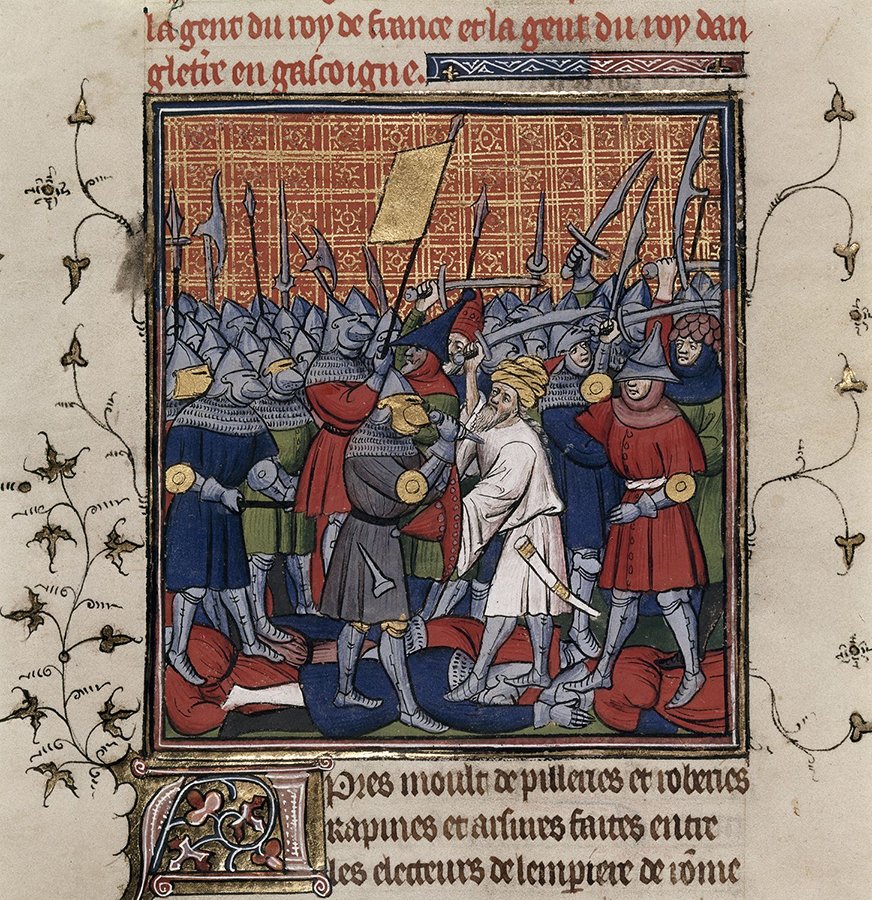 la gent du roy de france et la gent du roy dan
gletre en gascoigne.
Apres moult de pilleries et roberies
rapines et arsures faites entre
les electeurs de lempiere de rōme